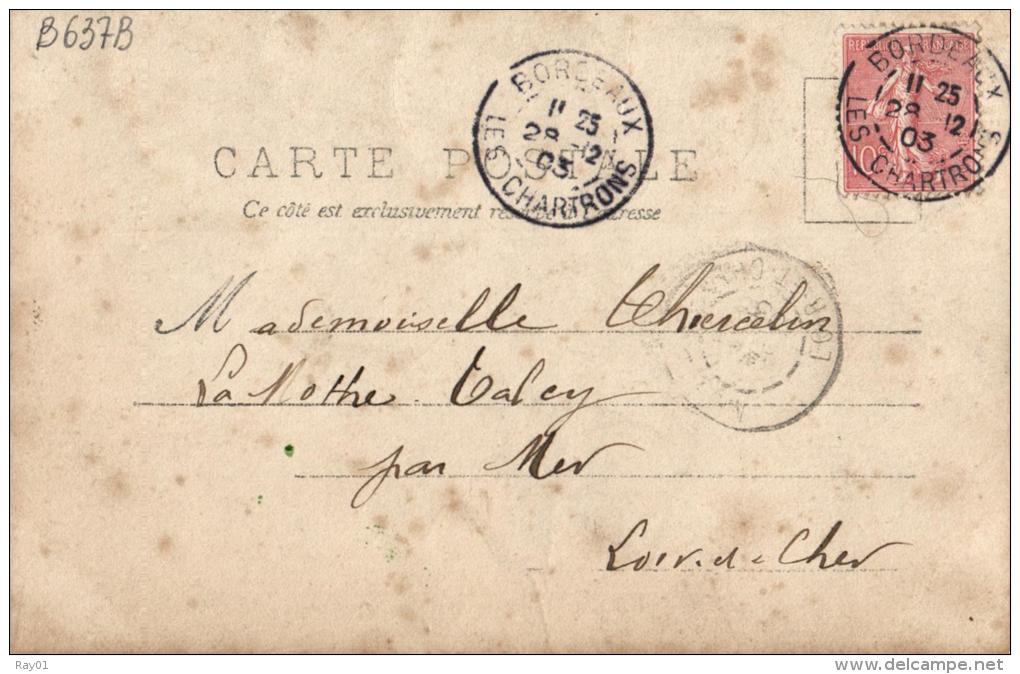 B637B
REPUBLIQUE FRANÇAISE
10
BORDEAUX
11 25
28 12
03
LES CHARTRONS
BORDEAUX
11 25
28 12
03
LES CHARTRONS
CARTE POSTALE
Ce côté est exclusivement réservé à l'adresse
Mademoiselle Thiercelin
La Mothe Talcy
par Mer
Loir-de-Cher
LOIR-ET-CHER
Ray01
www.delcampe.net